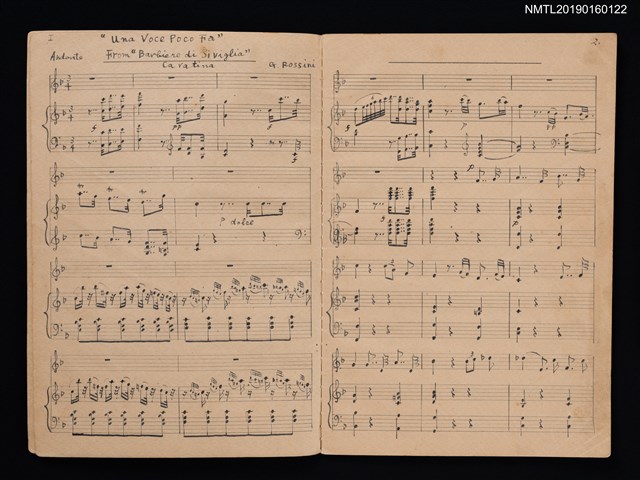 NMTL20190160122
I
"Una Voce Poco Fa"
From "Barbiero di Siviglia"
Cavatina
Andante
G. ROSSINI
3/4
f
pp
f
tr tr tr
p dolce
2.
f
p
p
p